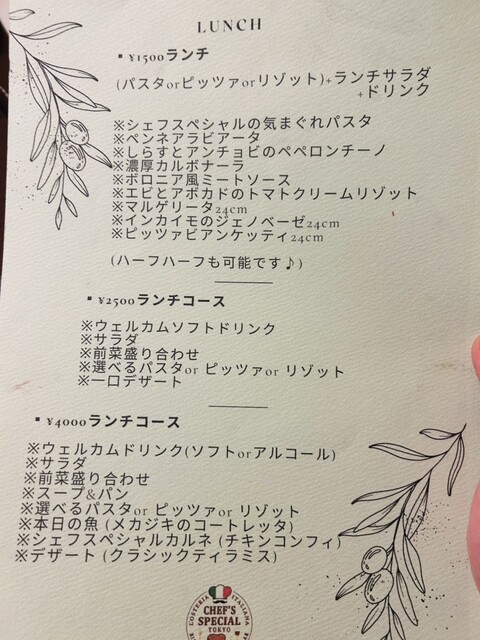 LUNCH
▪ ¥1500ランチ
(パスタorピッツァorリゾット)+ランチサラダ
+ドリンク
※シェフスペシャルの気まぐれパスタ
※ペンネアラビアータ
※しらすとアンチョビのペペロンチーノ
※濃厚カルボナーラ
※ボロニア風ミートソース
※エビとアボカドのトマトクリームリゾット
※マルゲリータ24cm
※インカイモのジェノベーゼ24cm
※ピッツァビアンケッティ24cm
(ハーフハーフも可能です♪)
▪ ¥2500ランチコース
※ウェルカムソフトドリンク
※サラダ
※前菜盛り合わせ
※選べるパスタor ピッツァor リゾット
※一口デザート
▪ ¥4000ランチコース
※ウェルカムドリンク(ソフトorアルコール)
※サラダ
※前菜盛り合わせ
※スープ&パン
※選べるパスタor ピッツァor リゾット
※本日の魚 (メカジキのコートレッタ)
※シェフスペシャルカルネ (チキンコンフィ)
※デザート (クラシックティラミス)
L'OSTERIA ITALIANA
CHEF'S
SPECIAL
TOKYO